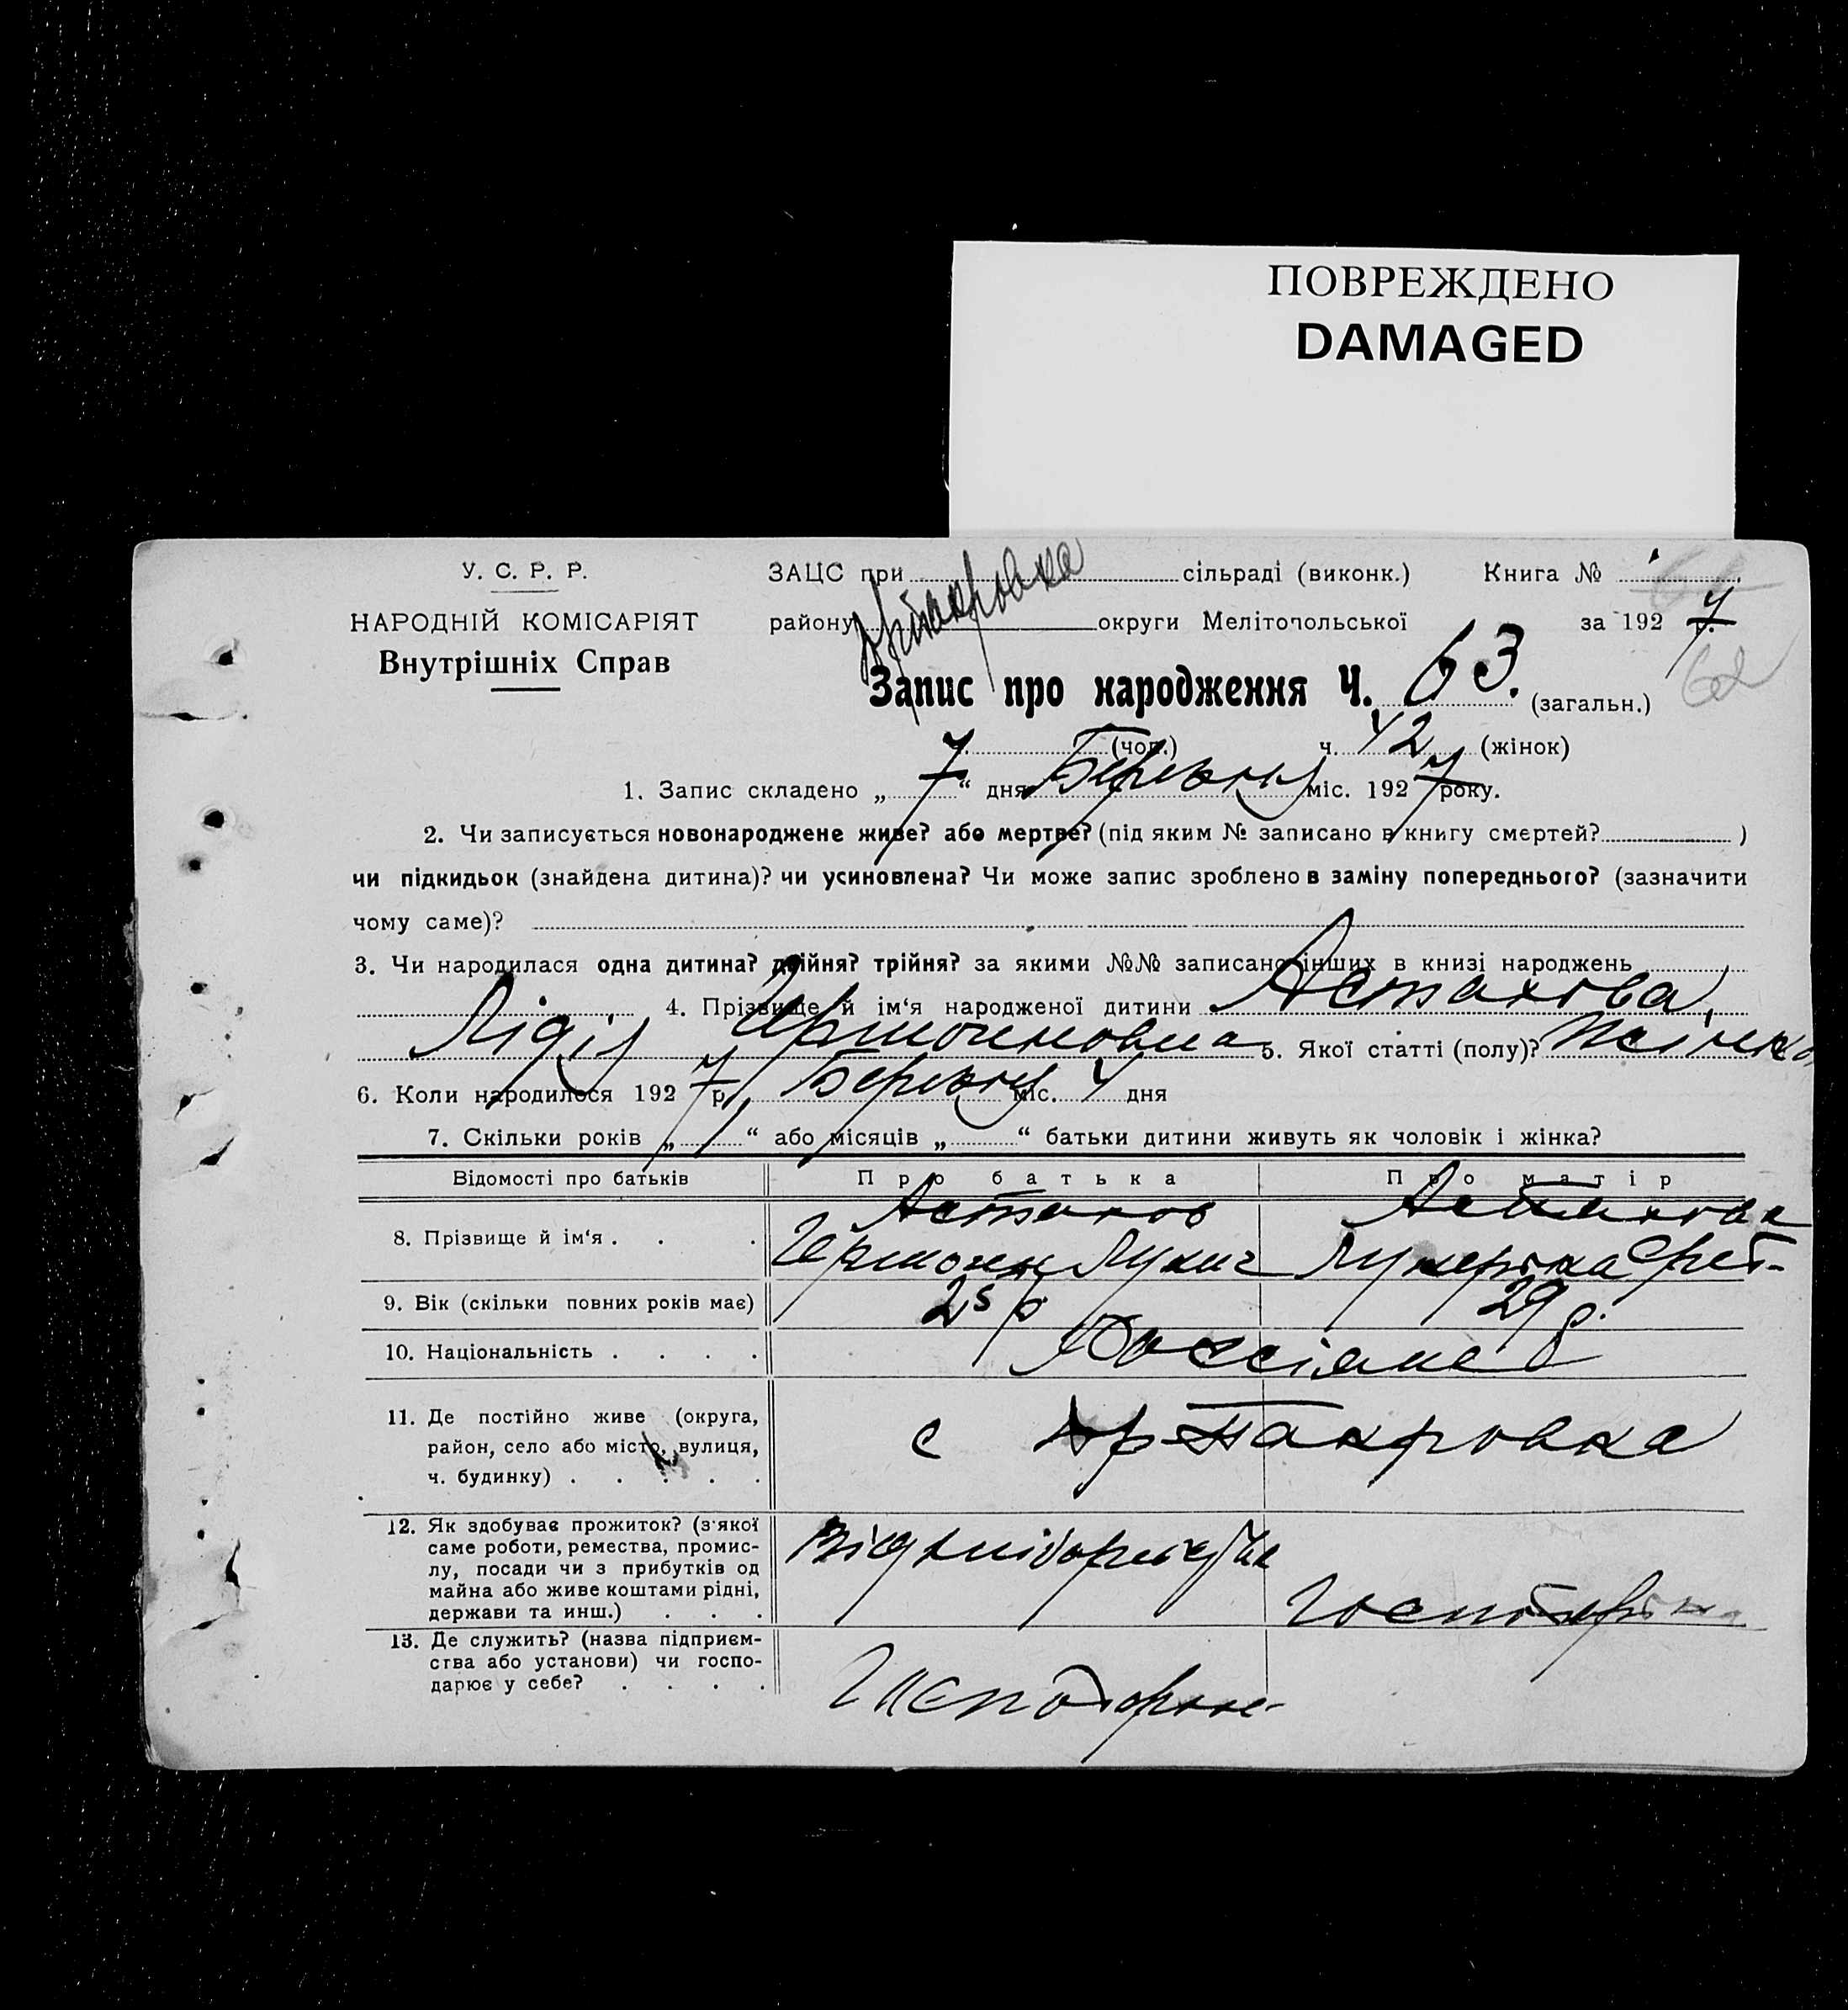 ПОВРЕЖДЕНО
DAMAGED
У. С. Р. Р.
НАРОДНІЙ КОМІСАРІЯТ
Внутрішніх Справ
ЗАЦС при сільраді (виконк.) Книга №
району округи Мелітопольської за 192 7 р.
Запис про народження Ч. 63. (загальн.)
62
(чол.) ч. 42 (жінок)
1. Запис складено „ 7 “ дня Березня міс. 192 7 року.
2. Чи записується новонароджене живе? або мертве? (під яким № записано в книгу смертей? )
чи підкидьок (знайдена дитина)? чи усиновлена? Чи може запис зроблено в заміну попереднього? (зазначити
чому саме)?
3. Чи народилася одна дитина? двійня? трійня? за якими №№ записано інших в книзі народжень
4. Прізвище й ім‘я народженої дитини Астахова,
Лідія 5. Якої статті (полу)?
6. Коли народилося 192 7 р. Березня міс. 4 дня
7. Скільки років „ “ або місяців „ “ батьки дитини живуть як чоловік і жінка?
Відомості про батьків Про батька Про матір
8. Прізвище й ім‘я . . . Астахов Астахова
Лукич
9. Вік (скільки повних років має) 25 р. 29 р.
10. Національність . . . .
11. Де постійно живе (округа,
район, село або місто, вулиця,
ч. будинку) . . . . . с
12. Як здобуває прожиток? (з якої
саме роботи, ремества, промис-
лу, посади чи з прибутків од
майна або живе коштами рідні,
держави та инш.) . . .
13. Де служить? (назва підприєм-
ства або установи) чи госпо-
дарює у себе? . . . .